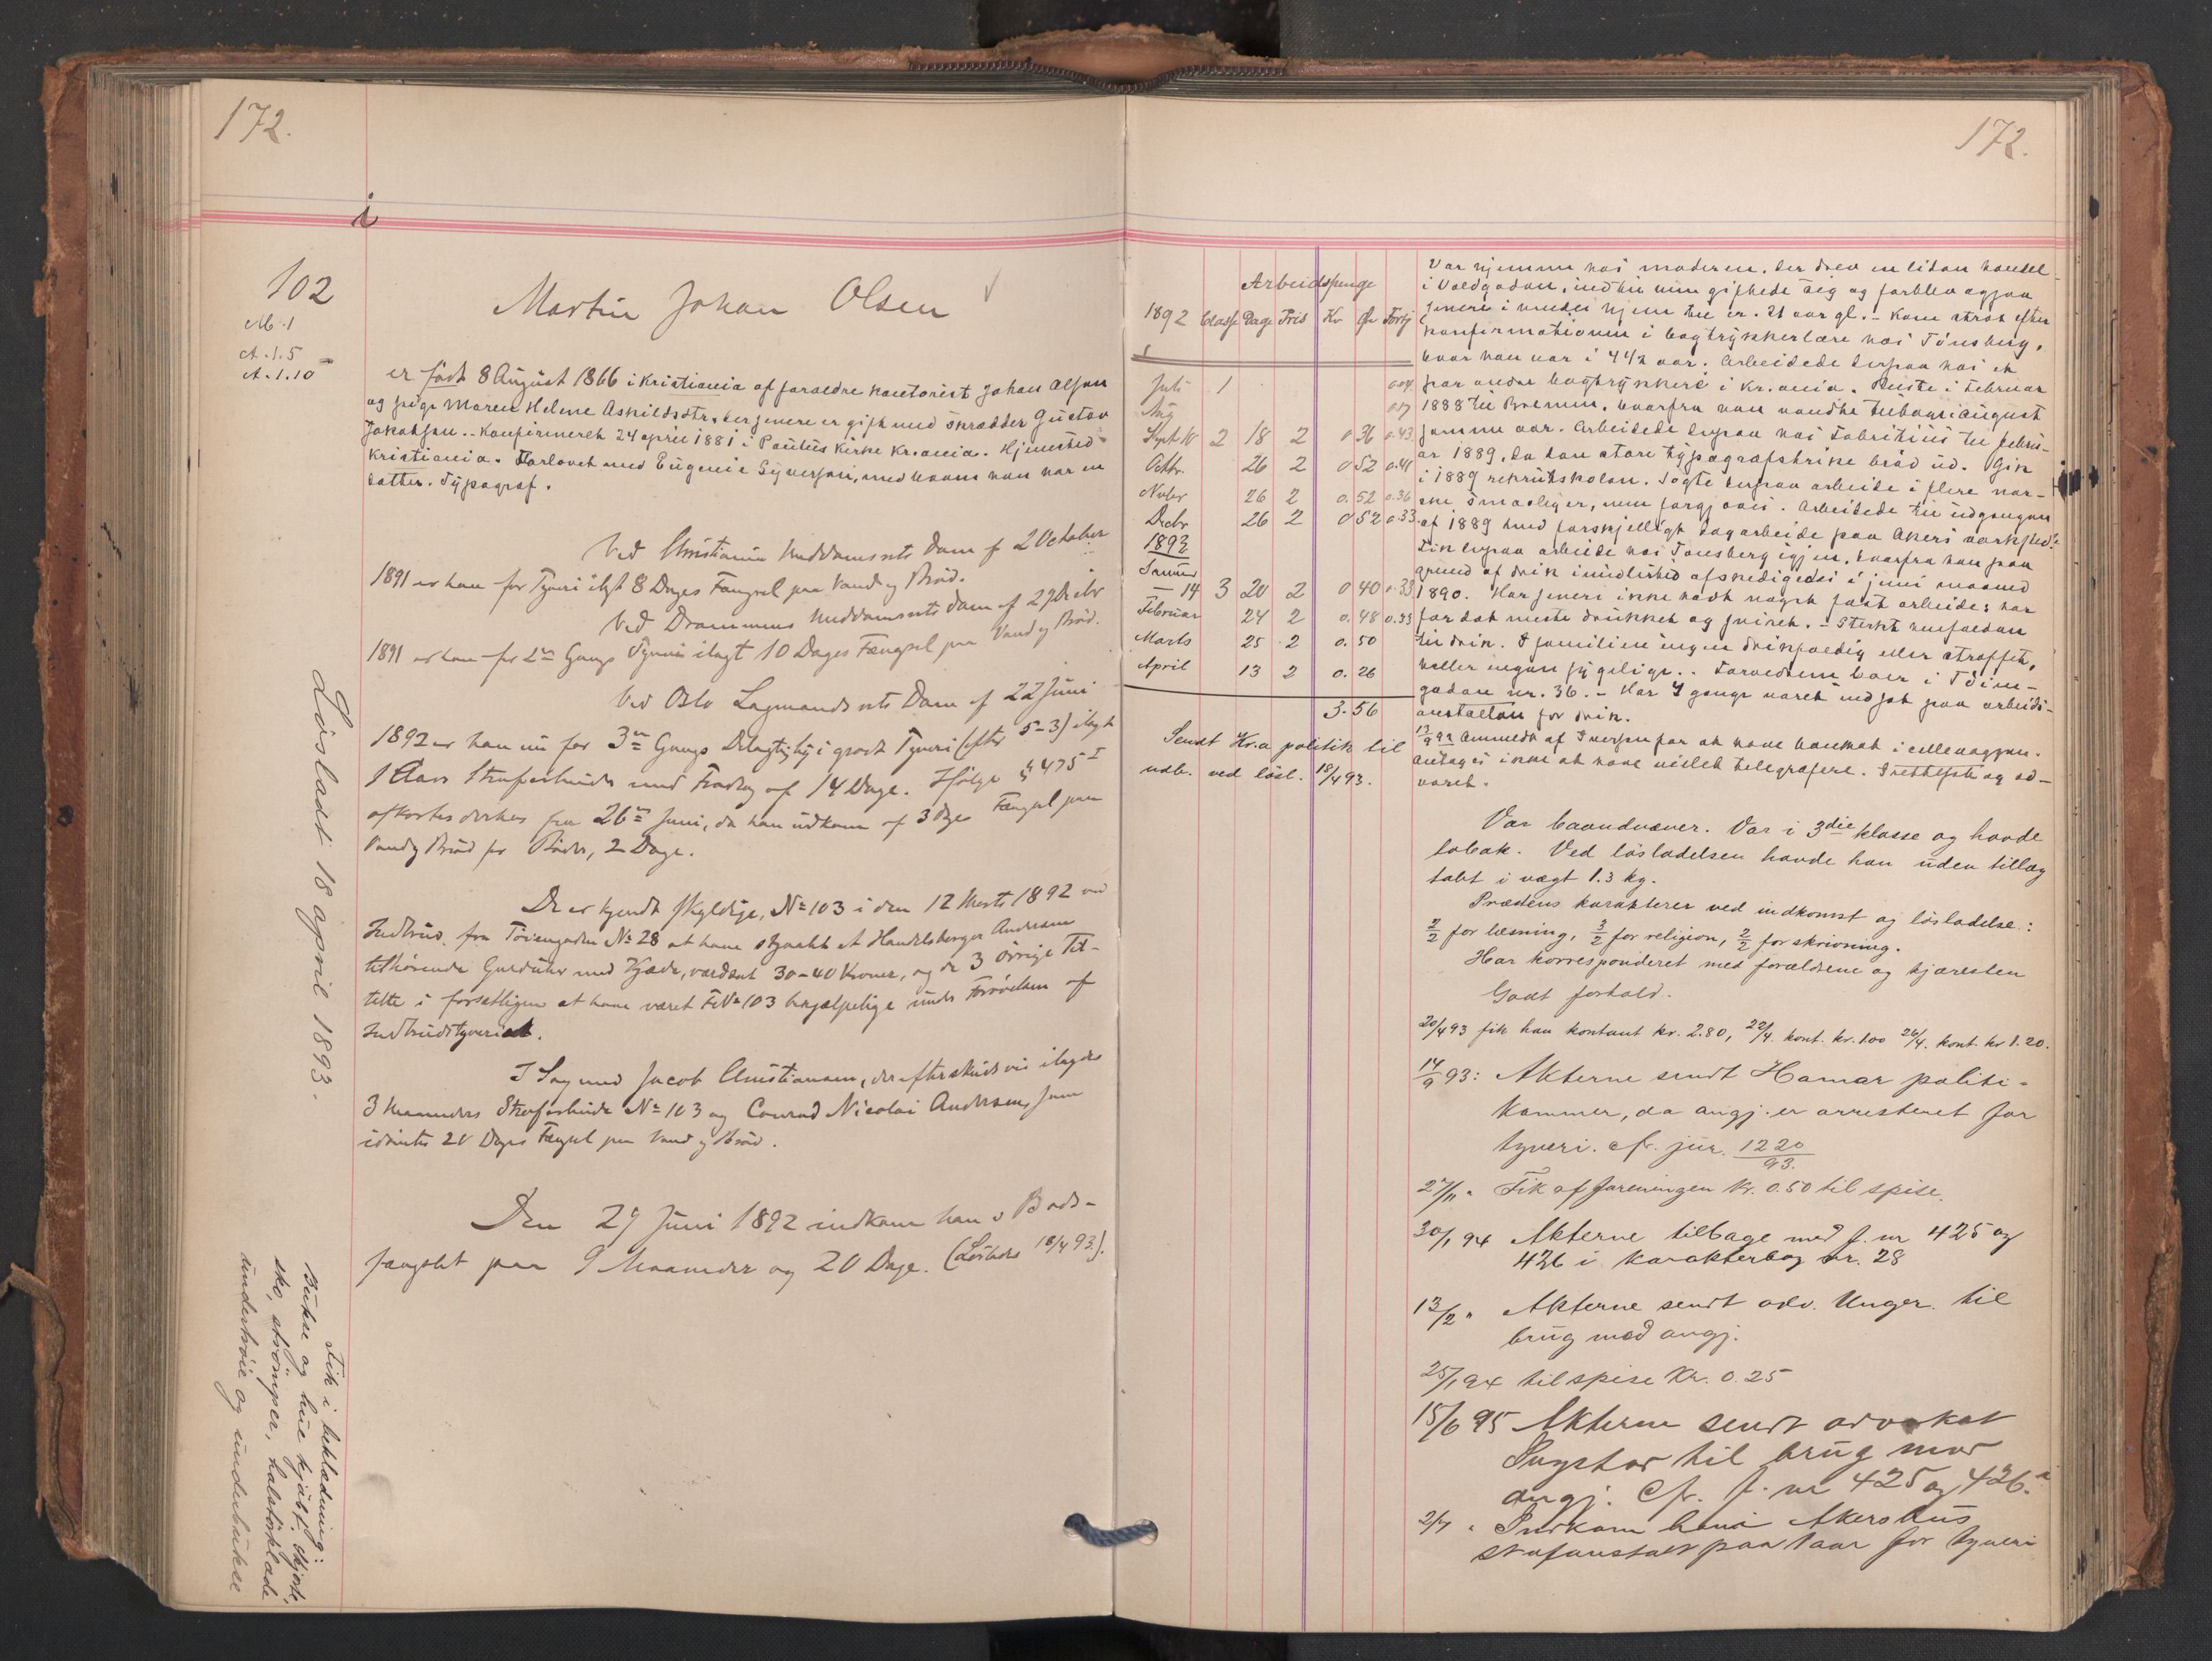 172.
102
M. 1
A. 1. 5
A. 1. 10
Martin Johan Olsen
er født 8 August 1866 i Kristiania af foraeldre kontorist Johan Olsen
og pige Maren Helene Askildsdtr., der senere er gift med skrædder Gustav
Jakobsen. - Konfirmeret 24 april 1881 i Paulus Kirke Kr.ania. Hjemsted
Kristiania. Forlovet med Eugenie Syversen, med hvem han har en
datter. Typograf.
Ved Christiania Meddomsrets Dom af 2 October
1891 er han for Tyveri ilagt 8 Dages Fængsel paa Vand og Brød.
Ved Drammens Meddomsrets Dom af 29 Decbr
1891 er han for 2en Gang Tyveri ilagt 10 Dages Fængsel paa Vand og Brød.
Ved Oslo Lagmandsrets Dom af 22 Juni
1892 er han nu for 3en Gangs Delagtighed i groft Tyveri (efter 5-3) ilagt
1 Aars Strafarbeide med Fradrag af 14 Dage. Ifølge § 475 I
afkortes derhos fra 26de Juni, da han udkom af 3 dages Fængsel paa
Vand og Brød for Bøder, 2 Dage.
De er kjendt skyldige, No 103 i den 12 Marts 1892 ved
Indbrud fra Tøiengaden No 28 at have stjaalet et Handelsborger Andersen
tilhørende Gulduhr med Kjæde, værdsat 30-40 Kroner, og de 3 øvrige Til-
talte i forsætligen at have været F. No 103 behjælpelige under Forøvelsen af
Indbrudstyveriet.
I Sag med Jacob Christiansen, der efterskudsvis ilagdes
3 Maaneders Strafarbeide No 103 og Conrad Nicolai Andersen, som
idømtes 20 Dages Fængsel paa Vand og Brød.
Den 29 Juni 1892 indkom han i Bods-
fængslet paa 9 Maaneder og 20 Dage. (Løslades 18/4 93.).
Løsladt 18 april 1893.
Fik i beklædning:
Bukse og hue kjøbt. skjorte,
sko, strømper, halstørklæde
undertrøie og underbukse
172.
Arbeidspenge
1892 Classe Dage Fris Kr Øre Fortj
Juli 1 0.04
Aug 0.17
Sept. 10 2 18 2 0 36 0.43
Octbr. 26 2 0 52 0.41
Novbr 26 2 0. 52 0.36
Decbr 26 2 0 52 0.33
1893
Januar
— 14 3 20 2 0 40 0.33
Februar 24 2 0. 48 0.33
Marts 25 2 0. 50
April 13 2 0. 26
3. 56
Sendt Kr.a politik til
udb. ved løsl. 18/4 93.
Var hjemme hos moderen, der drev en liden handel
i Voldgaden, indtil hun giftede sig og forblev ogsaa
senere i undes hjem til er. 21 aar gl. - Kom strax efter
konfirmationen i bogtrykkerlære hos Tønsberg,
hvor han var i 4 1/2 aar. Arbeidede derpaa hos et
par andre bogtrykkere i Kr.ania. Reiste i Februar
1888 til Bremen, hvorfra han vendte tilbage i August
samme aar. Arbeidede derpaa hos Fabritius til febru-
ar 1889, da den store typografstrike brød ud. Gik
i 1889 rekrutskolen. Søgte derpaa arbeide i flere nor-
ske smaabyer, men forgjæves. Arbeidede til udgangen
af 1889 med forskjelligt dagarbeide paa Akers værksted.
Fik derpaa arbeide hos Tønsberg igjen, hvorfra han paa
grund af drik imidlertid afskedigedes i juni maaned
1890. Har senere ikke havt noget fast arbeide; har
for det meste drukket og sviret. - Sterkt henfalden
til drik. I familien ingen drikfældig eller straffet,
heller ingen sygelige. Forældrene bor i Tøien-
gaden nr. 36. - Har 4 gange været indsat paa arbeids-
anstalten for drik.
13/9 92 Anmeldt af Iversen for at have banket i cellevæggen.
Antages ikke at have villet telegrafere. Irettesat og ad-
varet.
Var baandvæver. Var i 3die klasse og havde
tobak. Ved løsladelsen havde han uden tillæg
tabt i vægt 1.3 kg.
Prædens karakterer ved indkomst og løsladelse:
2/2 for læsning, 3/2 for religion, 2/2 for skrivning.
Har korresponderet med forældrene og kjæresten
Godt forhold.
20/4 93 fik han kontant kr. 2.80, 22/4. kont. kr. 1.00 26/4. kont. kr 1.20.
14/9 93: Akterne sendt Hamar politi-
kammer, da angj. er arresteret for
tyveri. cfr. jur. 1220/93.
27/11 " Fik af foreningen Kr. 0.50 til spise.
30/1 94 Akterne tilbage med f. nr 425 og
426 i karakterbog nr. 28
13/2 " Akterne sendt adv. Unger. til
brug mod angj.
25/1 94 til spise Kr. 0.25
15/6 95 Akterne sendt advokat
til brug mod
angj. Cfr. f. nr 425 og 426.
2/7 " Indkom han i Akershus
strafanstalt paa 1 aar for tyveri